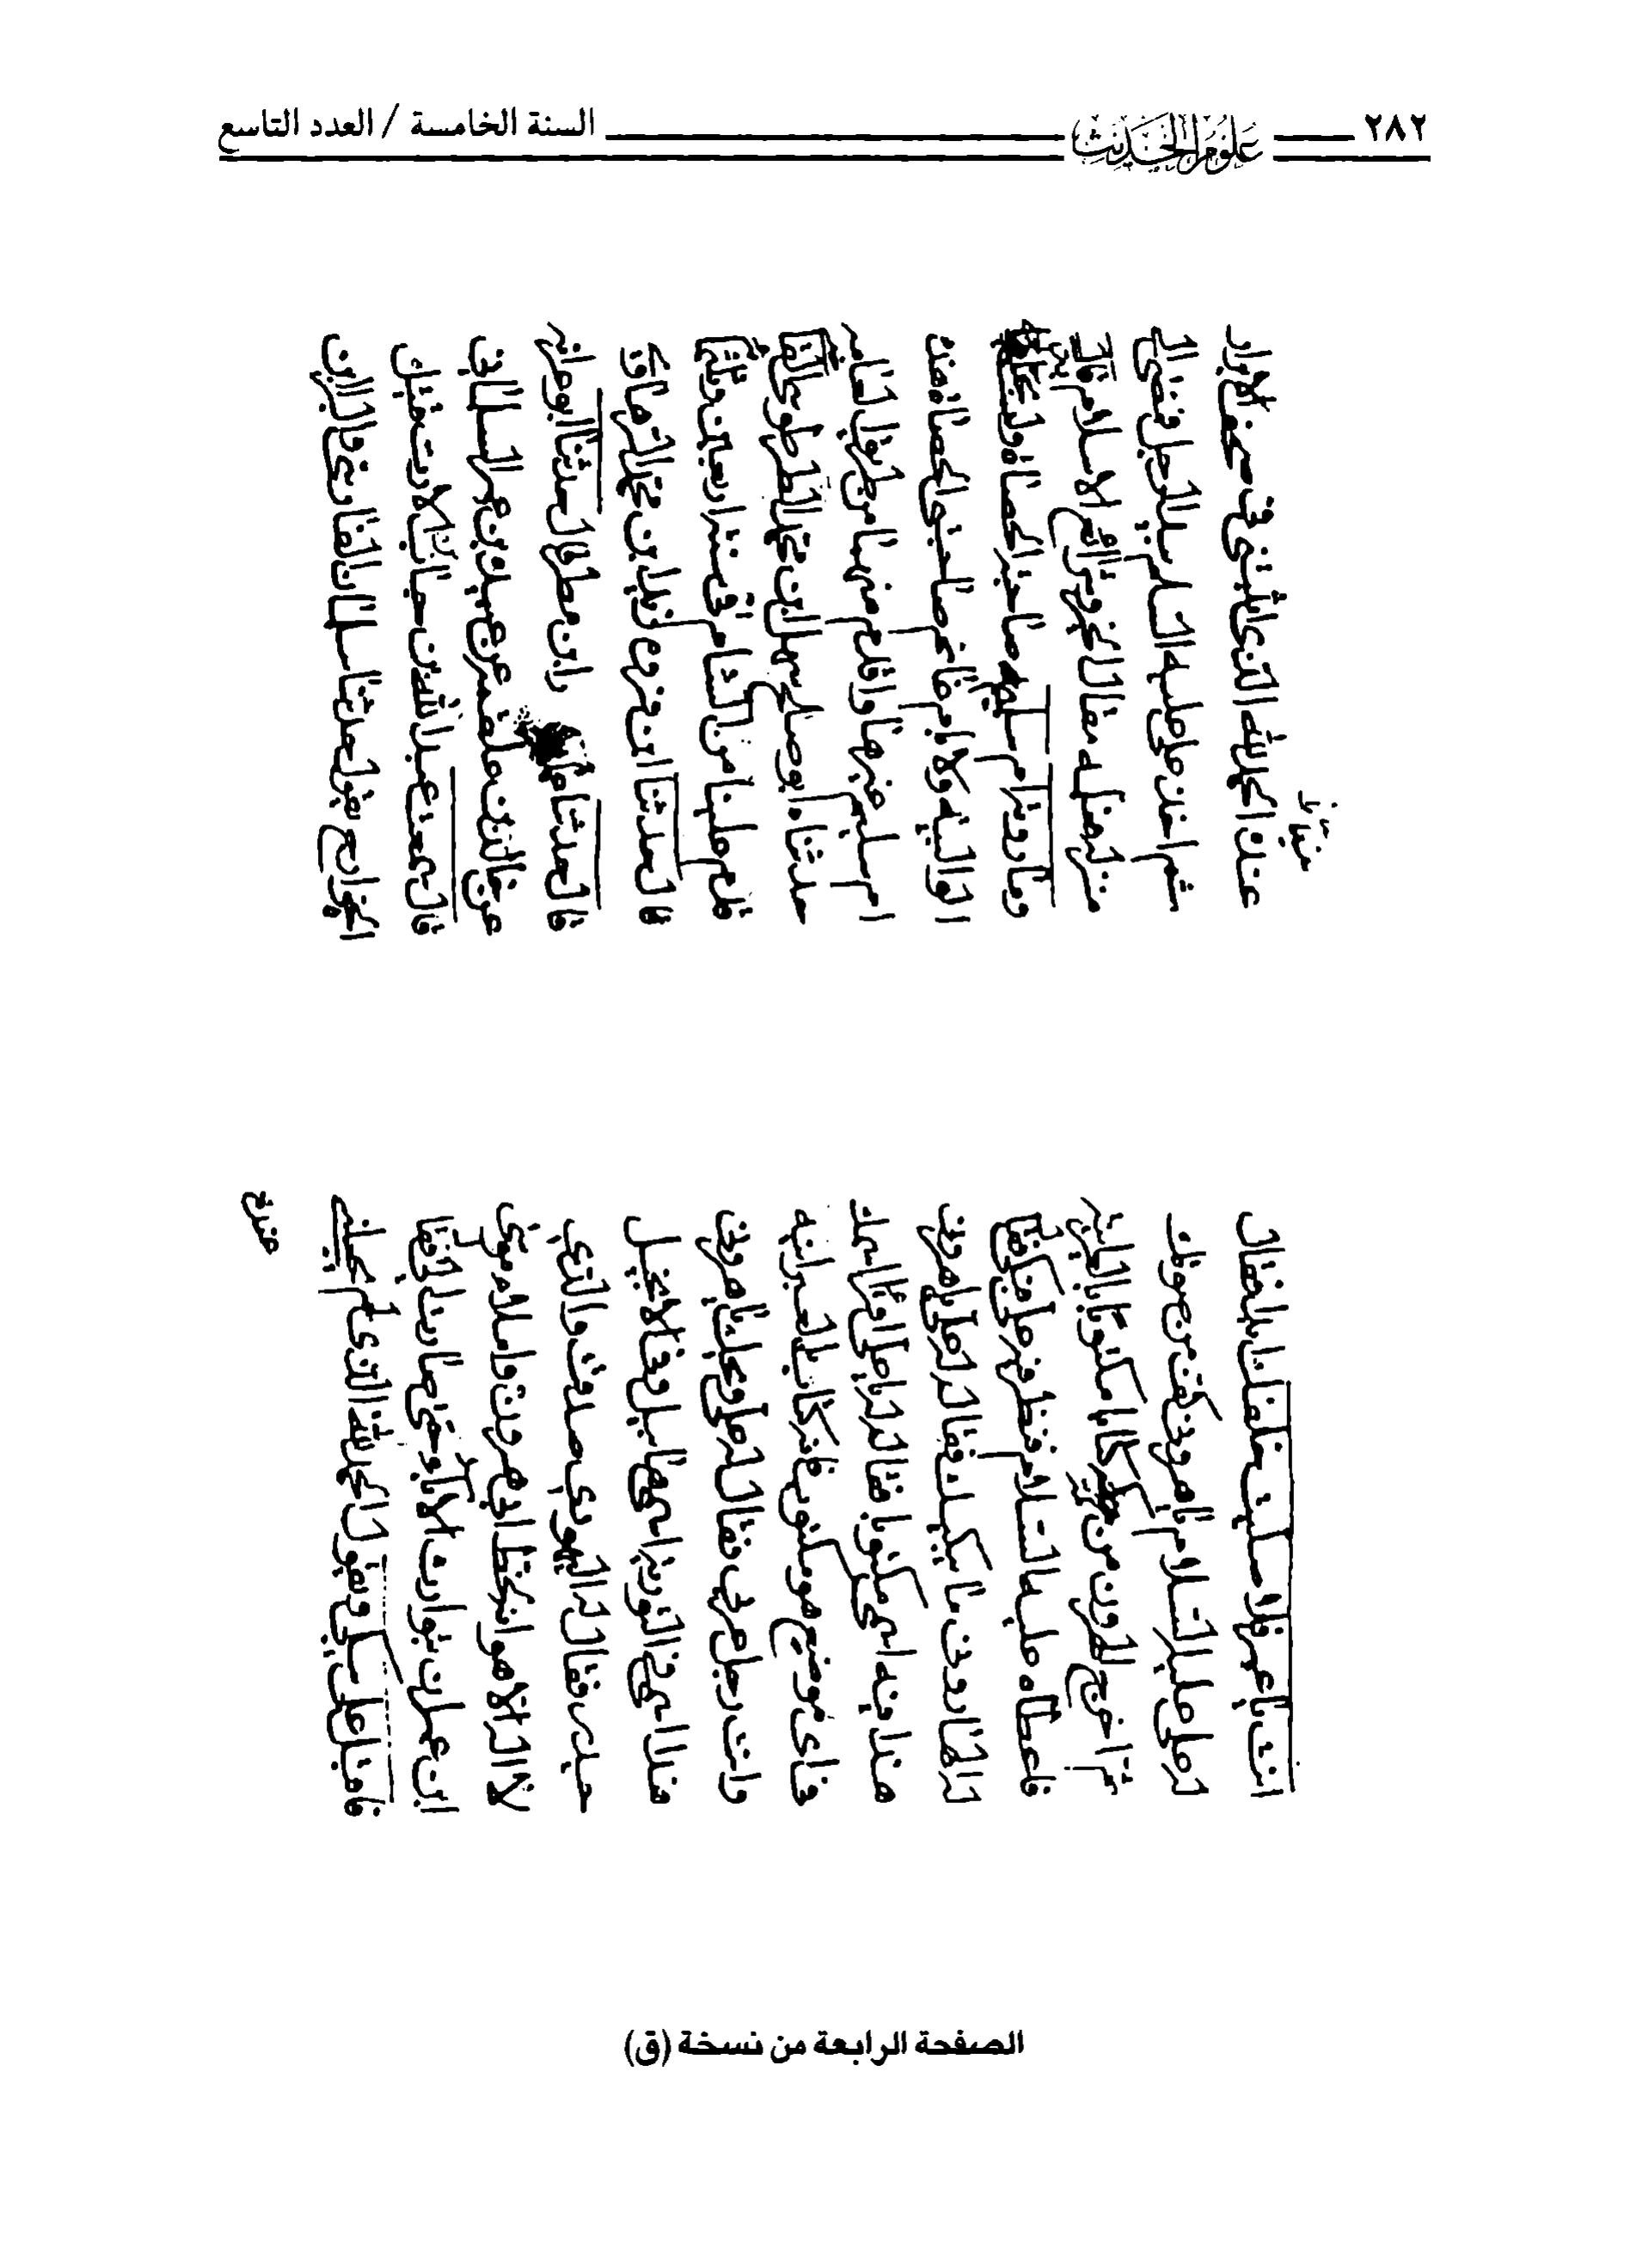 ٢٨٢ علوم الحديث السنة الخامسة / العدد التاسع
انت يا عمر فقال
له علي عليه السلام
ثم اخرج الهرون من كمه كتابا مكتوبا بالعبرانيه
فاعطاه عليا عليه السلام فنظر فيه علي فبكى
له الهاروني ما يبكيك فقال له علي يا هروني
هذا فيه اسمى مكتوبا فقال له يا علي
في اى موضع هو مكتوب فانه كتاب بالعبرانيه
وانت رجل عربى فقال له علي ويحك يا هروني
هذا اسمى في التورية هابيل وفي الانجيل
حيدر فقال له اليهودي صدقت والذي
لا اله الا هو انه لخط ابي هرون واملاء موسى
ابن عمران توارثه الاباء حتى صار الي قال
فاقبل علي يبكي ويقول الحمد لله الذي لم يجعلني
عنده
منسيا
عنده الحمد لله الذي اثبتني في صحف الابرار
ثم اخذ علي عليه السلام بيد الرجل فمضى الى
منزله فعلمه معالم الخير وشرائع الاسلام
وما روته ام سليم صاحبة الحصاة وليست
الوالبيه ولا ام غانم صاحبتي الحصاة هذه
ام سليم غيرهما واقدم منهما من طريق العامه
حدثنا ابو صالح سهل بن محمد الطرطوسي القاضي
قدم علينا من الشام في سنة اربعين وثلثمائة
قال حدثنا زيد بن محمد الرهاوي
قال حدثنا عمار بن مطر قال حدثنا ابو عوانه
عن خالد بن علقمه عن عبيدة بن عمرو السلماني
قال سمعت عبد الله بن خباب بن الارت قتيل
الخوارج يقول حدثنا سلمان الفارسي والبراء بن
الصفحة الرابعة من نسخة (ق)